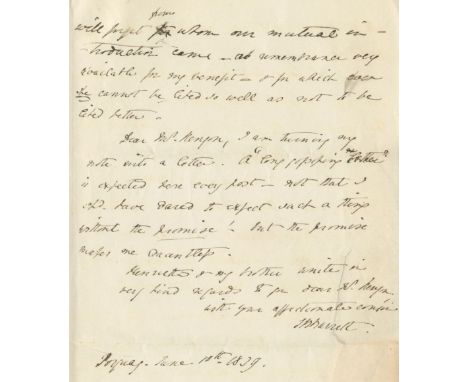 will forget from whom our mutual in-
troduction came – a remembrance very
available for my benefit – & for which even
he cannot be liked so well as not to be
liked better.
Dear Mr. Kenyon, I am turning my
note into a letter. A "long gossiping letter"
is expected here every post – not that I
shd. have dared to expect such a thing
without the promise! but the promise
makes me dauntless.
Henrietta & my brother unite in
very kind regards to you dear Mr. Kenyon
with your affectionate cousin
EBBarrett.
Torquay. June 10th. 1839.